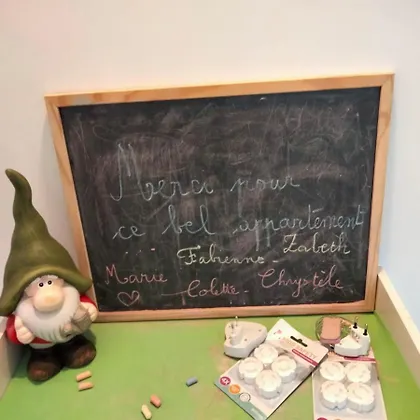 Merci pour
ce bel appartement
... Fabienne - Zabeth
Marie Colette - Chrystèle